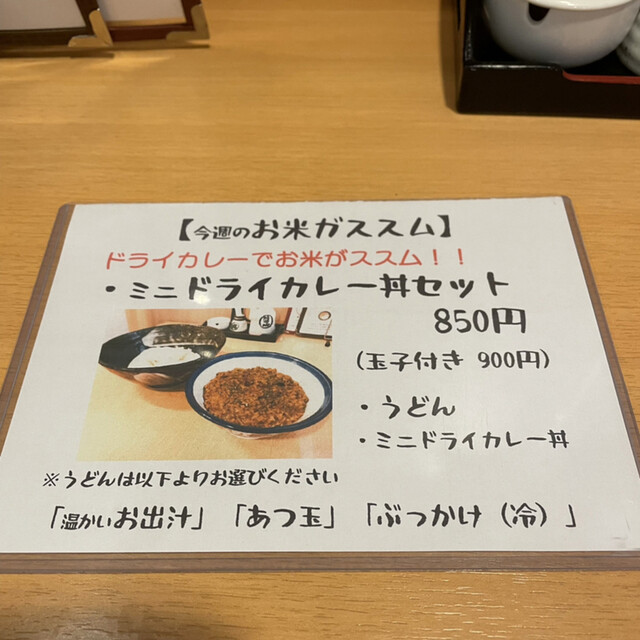 【今週のお米ガススム】
ドライカレーでお米がススム！！
・ミニドライカレー丼セット
850円
（玉子付き 900円）
・うどん
・ミニドライカレー丼
※うどんは以下よりお選びください
「温かいお出汁」「あつ玉」「ぶっかけ（冷）」